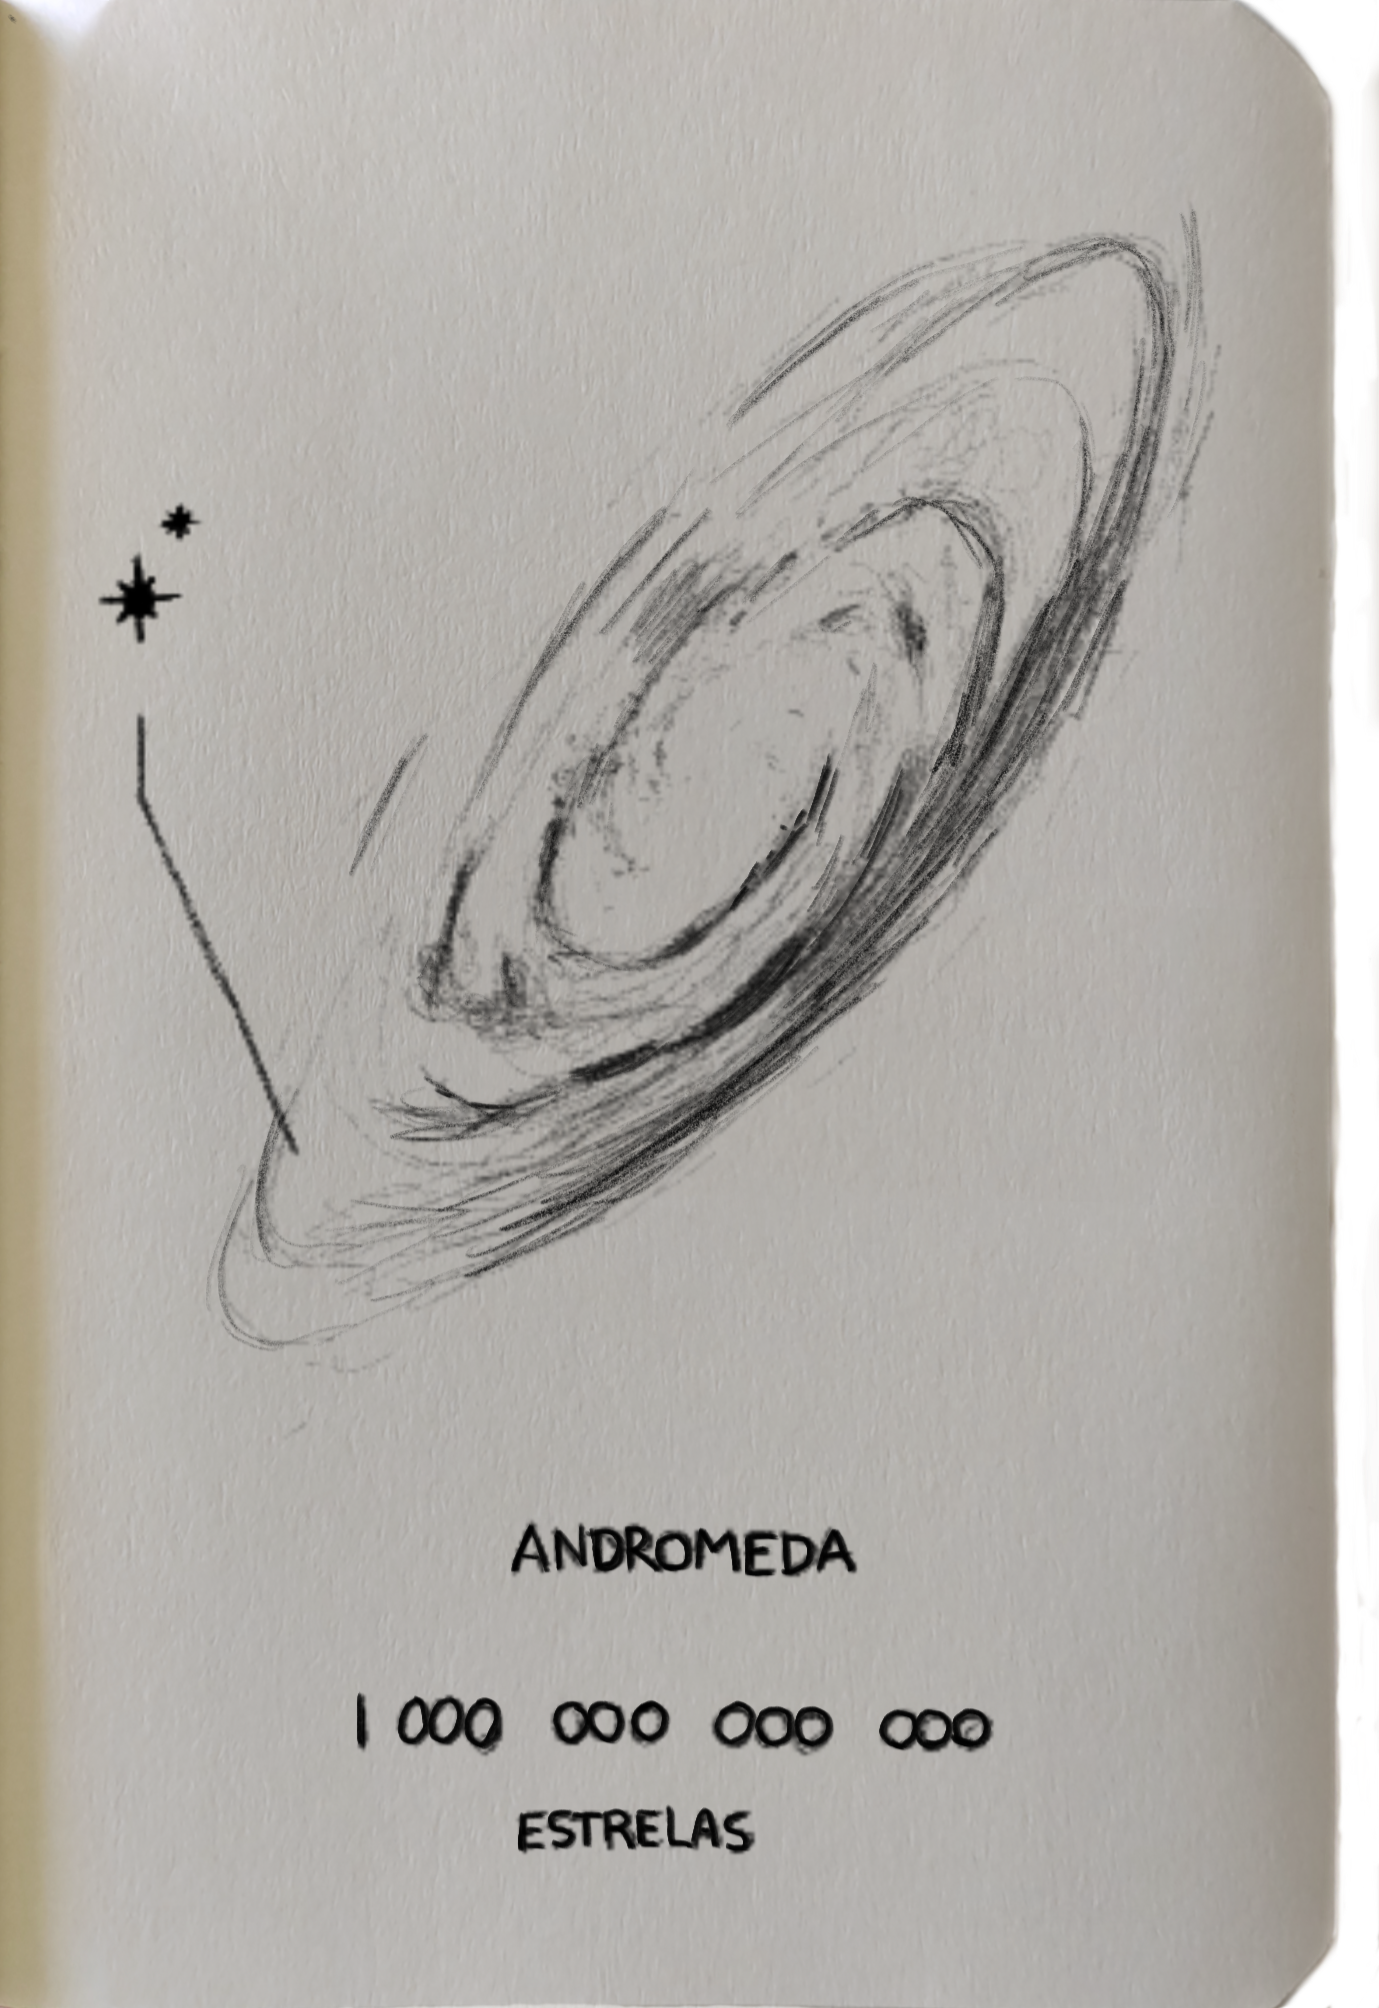 ANDROMEDA
1 000 000 000 000
ESTRELAS